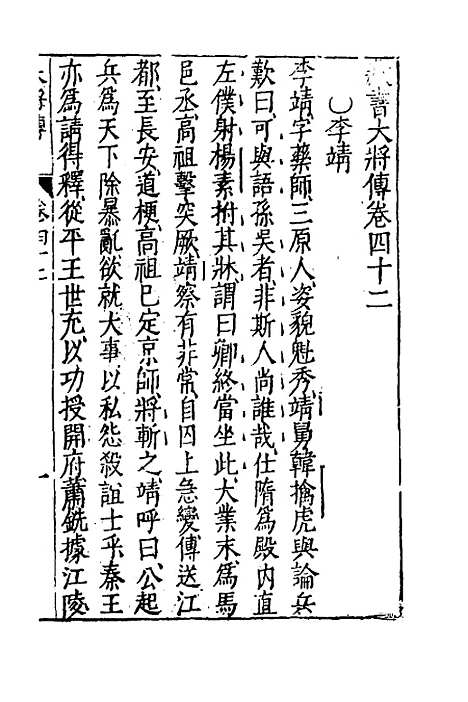 書大將傳卷四十二
李靖
李靖字藥師三原人姿貌魁秀靖舅韓擒虎與論兵
歎曰可與語孫吳者非斯人尚誰哉仕隋爲殿内直
左僕射楊素拊其牀謂曰卿終當坐此大業末爲馬
邑丞高祖擊突厥靖察有非常自囚上急變傳送江
都至長安道梗高祖已定京師將斬之靖呼曰公起
兵爲天下除暴亂欲就大事以私怨殺誼士乎秦王
亦爲請得釋從平王世充以功授開府蕭銑據江陵
大將傳 卷四十二 一